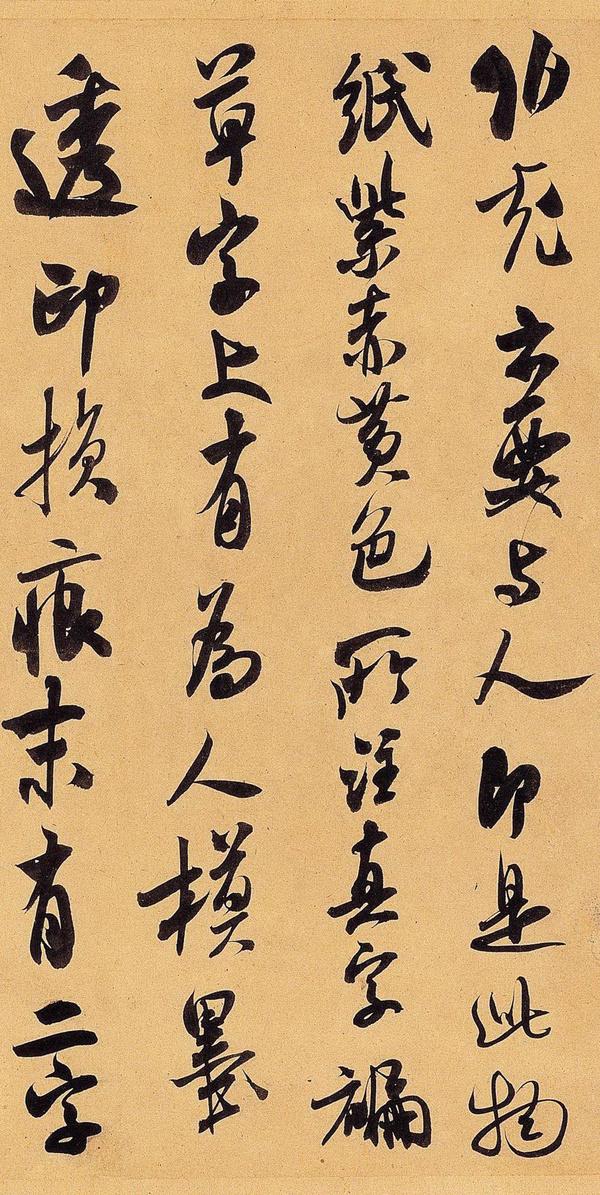 伯充云要与人即是此物
紙紫赤黄色所注真字褊
草字上有為人模墨
透印損痕末有二字